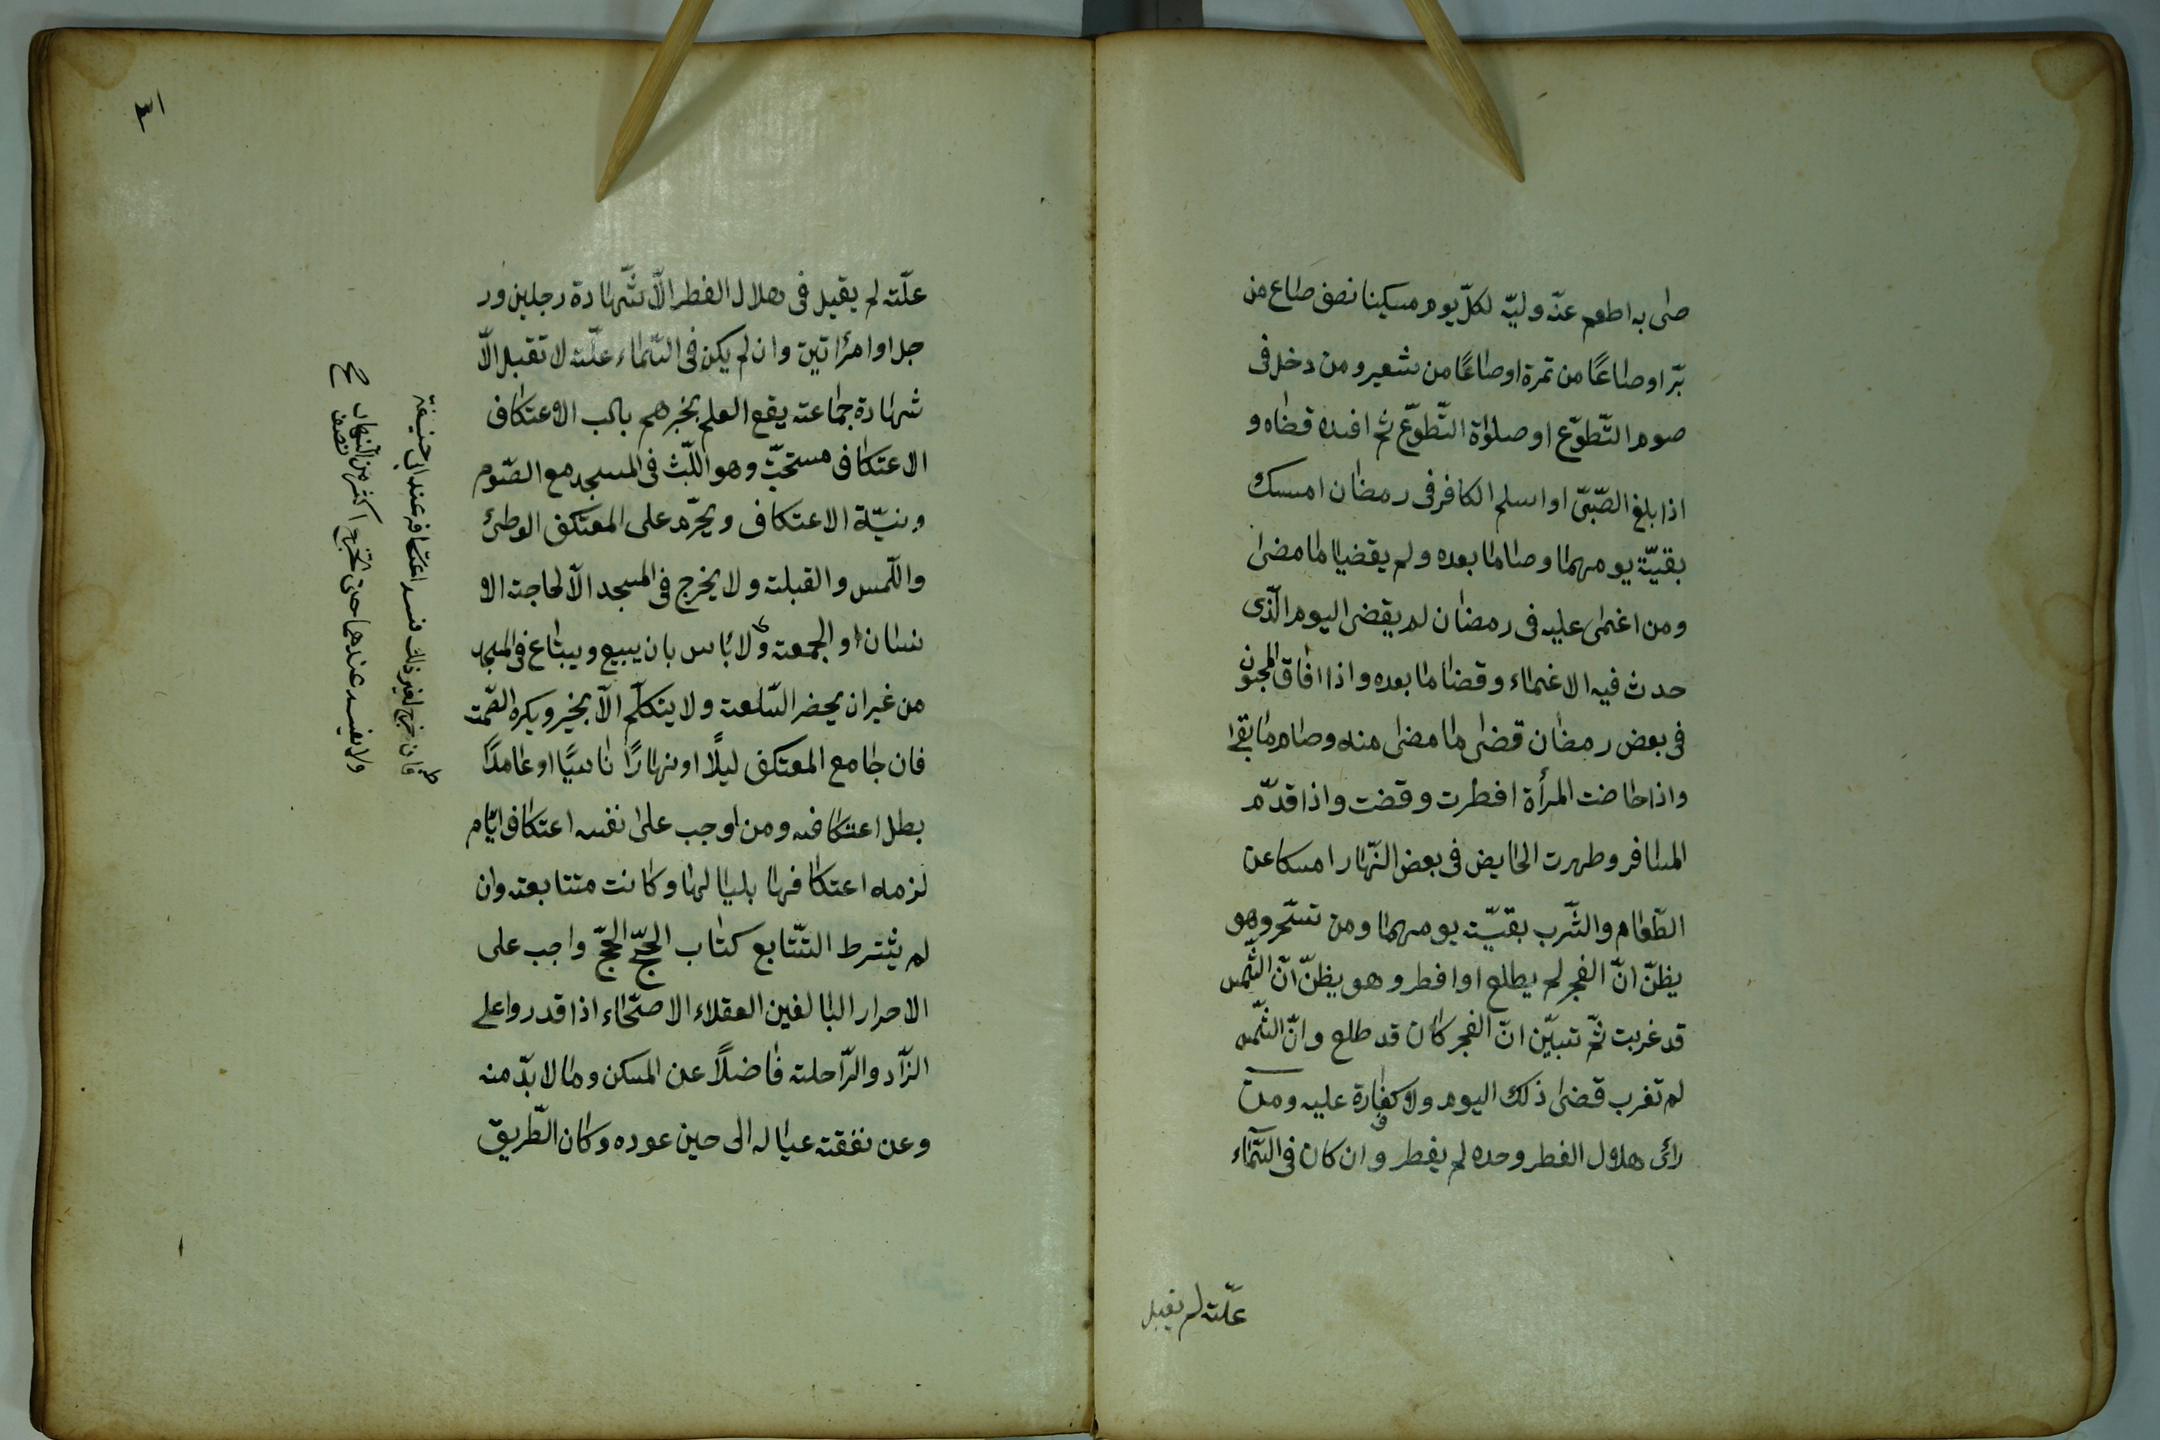 صى به اطعم عنه وليّه لكلّ يوم مسكينا نصف صاع من
برّ او صاعًا من تمرة اوصاعًا من شعير ومن دخل فى
صوم التّطوّع او صلوٰة التّطوّع ثم افسده قضاه و
اذا بلغ الصّبىّ او اسلم الكافر فى رمضان امسك
بقيّة يومهما وصاما ما بعده ولم يقضيا ما مضى
ومن اغمى عليه فى رمضان لم يقضى اليوم الّذى
حدث فيه الاغماء وقضا ما بعده واذا افاق المجنون
فى بعض رمضان قضى ما مضى منه وصام ما بقى
واذا حاضت المرأة افطرت وقضت واذا قدّم
المسافر وطهرت الحايض فى بعض النّهار امسكا عن
الطّعام والشّرب بقيّة يومهما ومن تسحّر وهو
يظنّ انّ الفجر لم يطلع او افطر وهو يظنّ انّ الشّمس
قد غربت ثمّ تبيّن انّ الفجر كان قد طلع وانّ الشّمس
لم تغرب قضى ذلك اليوم ولا كفارة عليه ومن
رائ هلال الفطر وحده لم يفطر وان كان فى السّماء
علّة لم يقبل
علّة لم يقبل فى هلال الفطر الّا شّهادة رجلين ور
جل او امرٔاتين وان لم يكن فى السّماء علّة لا تقبل الّا
شهادة جماعة يقع العلم بخبرهم باب الاعتكاف
الاعتكاف مستحبّ وهو اللّبث فى المسجد مع الصّوم
ونيّة الاعتكاف ويحرّم على المعتكف الوطئ
واللّمس والقبلة ولا يخرج فى المسجد الّا لحاجة الا
نسان او الجمعة ولا بٔاس بان يبيع ويبتاع فى المسجد
من غير ان يحضر السّلعة ولا يتكلّم الّا بخير ويكره الصّمت
فان جامع المعتكف ليلًا او نهارًا ناسيًا او عامدًا
بطل اعتكافه ومن اوجب على نفسه اعتكاف ايّام
لزمه اعتكافها بلياليها وكانت متتابعة وان
لم يشترط التّتابع كتاب الحجّ الحجّ واجب على
الاحرار البالغين العقلاء الاصحّاء اذا قدروا على
الزّاد والرّاحلة فاضلًا عن المسكن وما لا بدّ منه
وعن نفقة عياله الى حين عوده وكان الطّريق
فان خرج لغير ذلك فسد اعتكافه عند ابى حنيفة
ولا يفسد عندهما حتى يخرج اكثر من النّهار
نصف